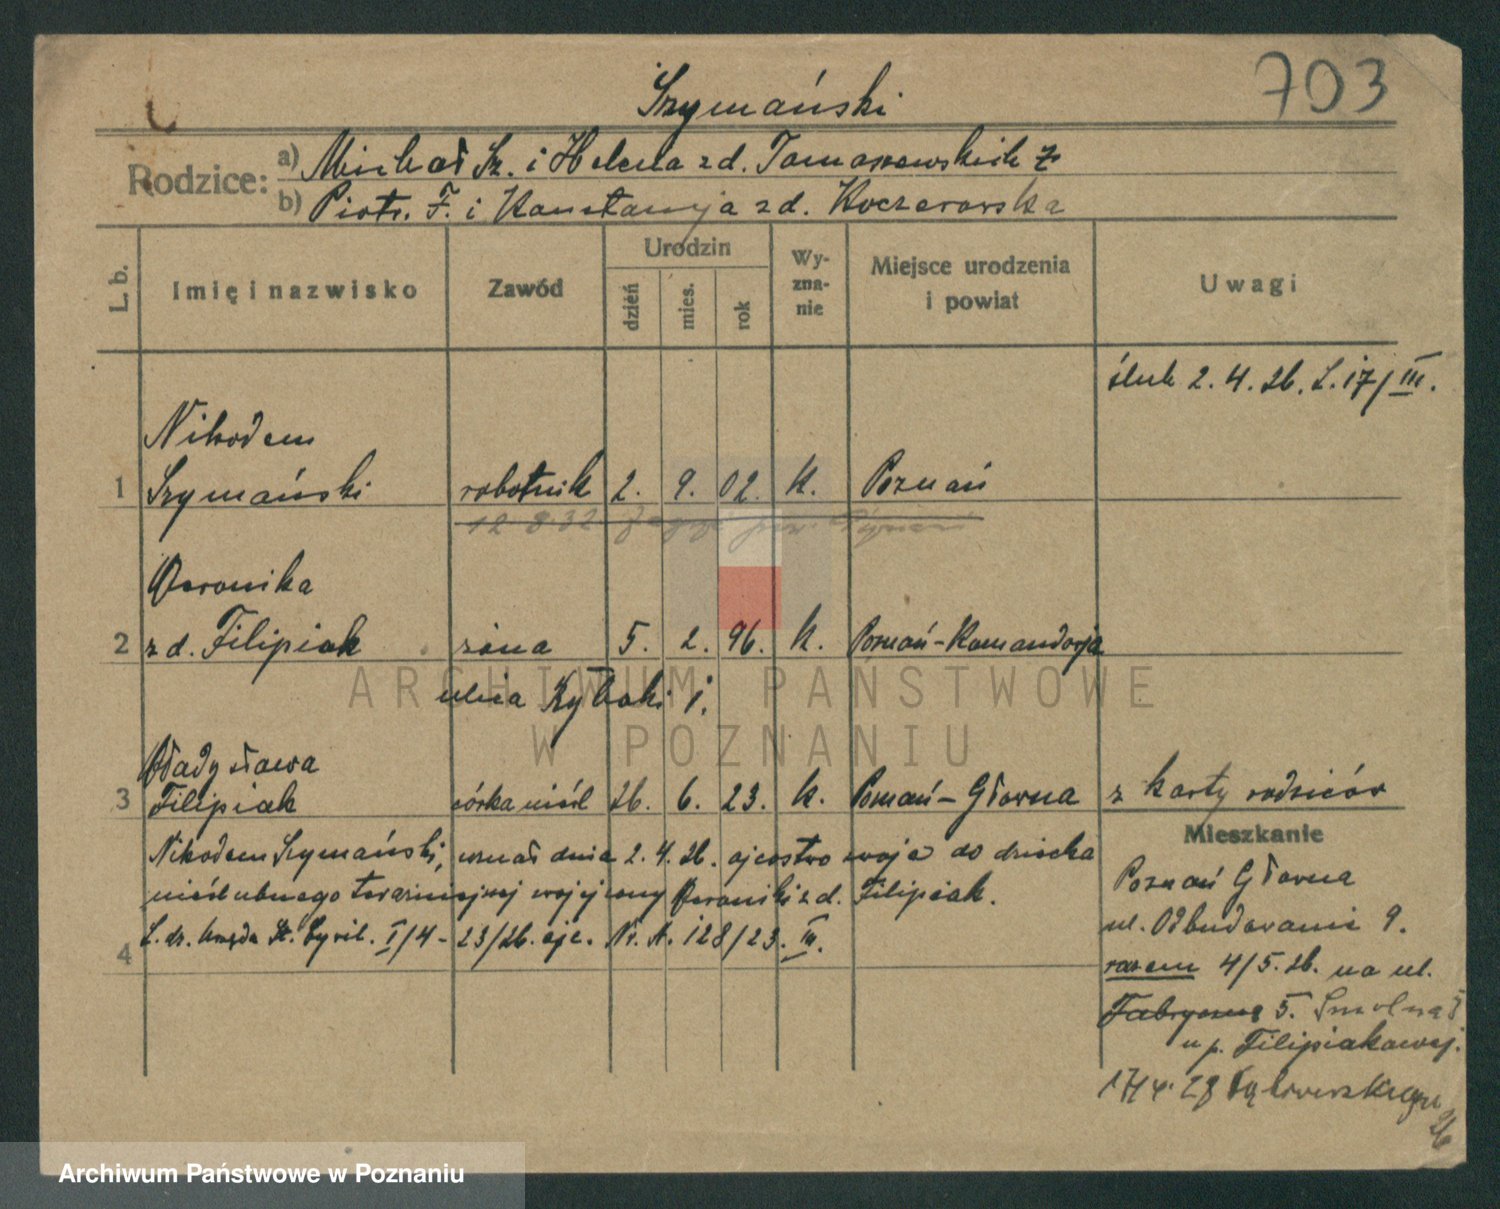 703
Szymański
Rodzice: a) Michał Sz. i Helena z d. Tomaszewskich
b) Piotr. F. i Konstancja z d. Koczorowska
L. b.
Imię i nazwisko
Zawód
Urodzin
dzień
mies.
rok
Wy-
zna-
nie
Miejsce urodzenia
i powiat
Uwagi
ślub 2. 4. 26. L. 17/III.
Nikodem
1 Szymański robotnik 2. 9. 02. k. Poznań
12 8 32
Weronika
2 z d. Filipiak żona 5. 2. 96. k. Poznań-Komandorja
ulica Rybaki
Władysława
3 Filipiak córka nieśl 26. 6. 23. k. Poznań-Główna z karty rodziców
Nikodem Szymański, uznał dnia 2. 4. 26. ojcostwo swoje do dziecka
nieślubnego terazniejszej swojej żony Weroniki z d. Filipiak.
L. dz. Urzędu St. Cywil. I/4-23/26. ojc. Nr. A. 128/23. III.
4
Mieszkanie
Poznań Główna
ul. Odbudowanie 9.
razem 4/5. 26. na ul.
Fabryczną 5. Smolna
u p. Filipiakowej.
17/4. 28
ARCHIWUM PAŃSTWOWE
W POZNANIU
Archiwum Państwowe w Poznaniu